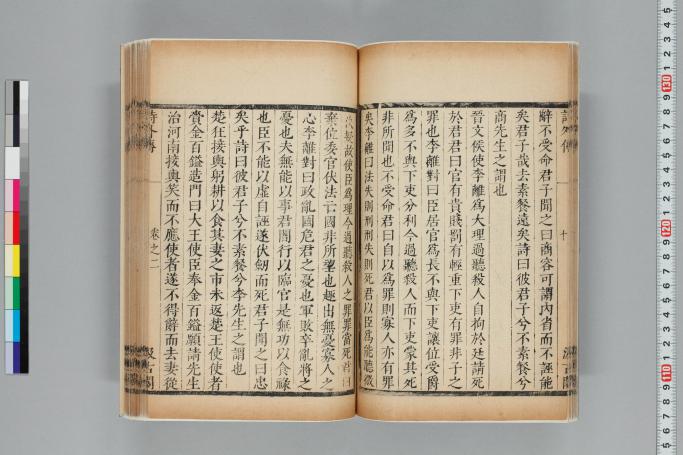 辭不受命君子聞之曰商容可謂內省而不誣能
矣君子哉去素餐遠矣詩曰彼君子兮不素餐兮
商先生之謂也
晉文侯使李離為大理過聽殺人自拘於廷請死
於君君曰官有貴賤罰有輕重下吏有罪非子之
罪也李離對曰臣居官為長不與下吏讓位受爵
為多不與下吏分利今過聽殺人而下吏蒙其死
非所聞也不受命君曰自以為罪則寡人亦有罪
矣李離曰法失則刑刑失則死君以臣為能聽微
決疑故使臣為理今過聽殺人之罪罪當死君曰
棄位委官伏法亡國非所望也趣出無憂寡人之
心李離對曰政亂國危君之憂也軍敗卒亂將之
憂也夫無能以事君闇行以臨官是無功以食祿
也臣不能以虛自誣遂伏劒而死君子聞之曰忠
矣乎詩曰彼君子兮不素餐兮李先生之謂也
楚狂接輿躬耕以食其妻之市未返楚王使使者
賫金百鎰造門曰大王使臣奉金百鎰願請先生
治河南接輿笑而不應使者遂不得辭而去妻從
詩外傳
卷之二
汲古閣
詩外傳
十
130
120
110